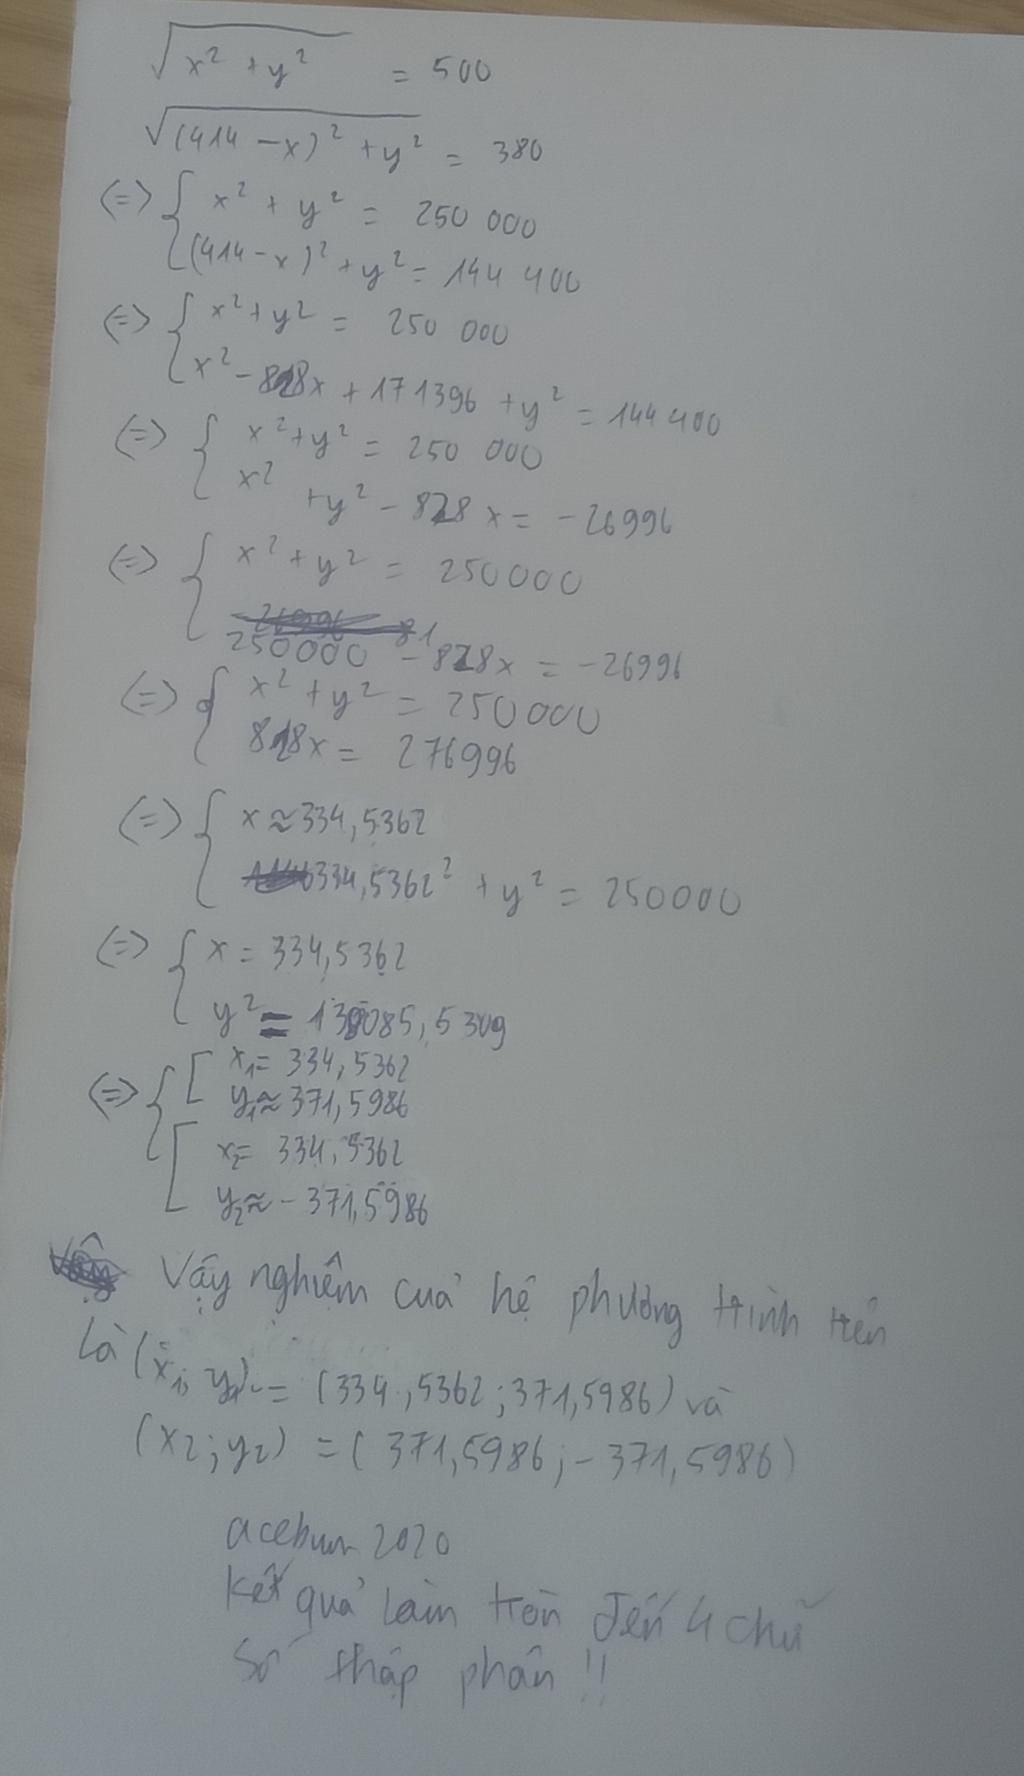 √(x² + y²) = 500
√((414 - x)² + y²) = 380
(=) { x² + y² = 250 000
(414 - x)² + y² = 144 400
(=) { x² + y² = 250 000
x² - 828x + 171396 + y² = 144 400
(=) { x² + y² = 250 000
x² + y² - 828x = -26996
(=) { x² + y² = 250000
250000 - 828x = -26996
(=) { x² + y² = 250000
828x = 276996
(=) { x ≈ 334,5362
334,5362² + y² = 250000
(=) { x = 334,5362
y² = 138085,5309
(=) { [ x₁ = 334,5362
y₁ ≈ 371,5986
[ x₂ = 334,5362
y₂ ≈ - 371,5986
Vậy nghiệm của hệ phương trình trên
là (x₁; y₁) = (334,5362; 371,5986) và
(x₂; y₂) = (371,5986; -371,5986)
2020
Kết quả làm tròn đến 4 chữ
số thập phân !!